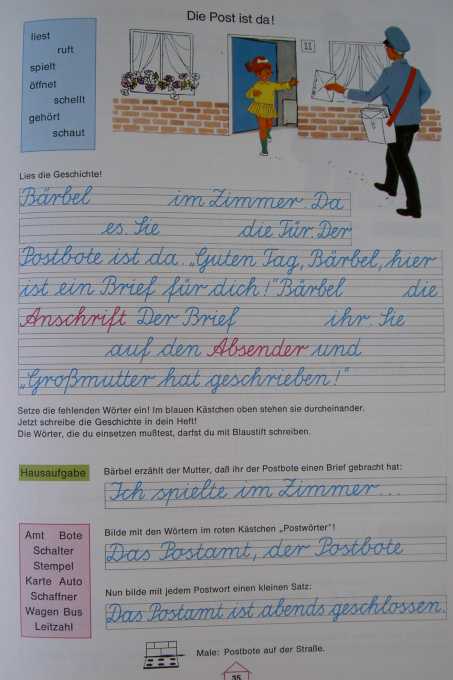 Die Post ist da!
liest
ruft
spielt
öffnet
schellt
gehört
schaut
11
Lies die Geschichte!
Bärbel im Zimmer. Da
es. Sie die Tür. Der
Postbote ist da. „Guten Tag, Bärbel, hier
ist ein Brief für dich!" Bärbel die
Anschrift. Der Brief ihr. Sie
auf den Absender und
„Großmutter hat geschrieben!"
Setze die fehlenden Wörter ein! Im blauen Kästchen oben stehen sie durcheinander.
Jetzt schreibe die Geschichte in dein Heft!
Die Wörter, die du einsetzen mußtest, darfst du mit Blaustift schreiben.
Hausaufgabe
Bärbel erzählt der Mutter, daß ihr der Postbote einen Brief gebracht hat:
Ich spielte im Zimmer...
Amt Bote
Schalter
Stempel
Karte Auto
Schaffner
Wagen Bus
Leitzahl
Bilde mit den Wörtern im roten Kästchen „Postwörter"!
Das Postamt, der Postbote
Nun bilde mit jedem Postwort einen kleinen Satz:
Das Postamt ist abends geschlossen.
Male: Postbote auf der Straße.
35